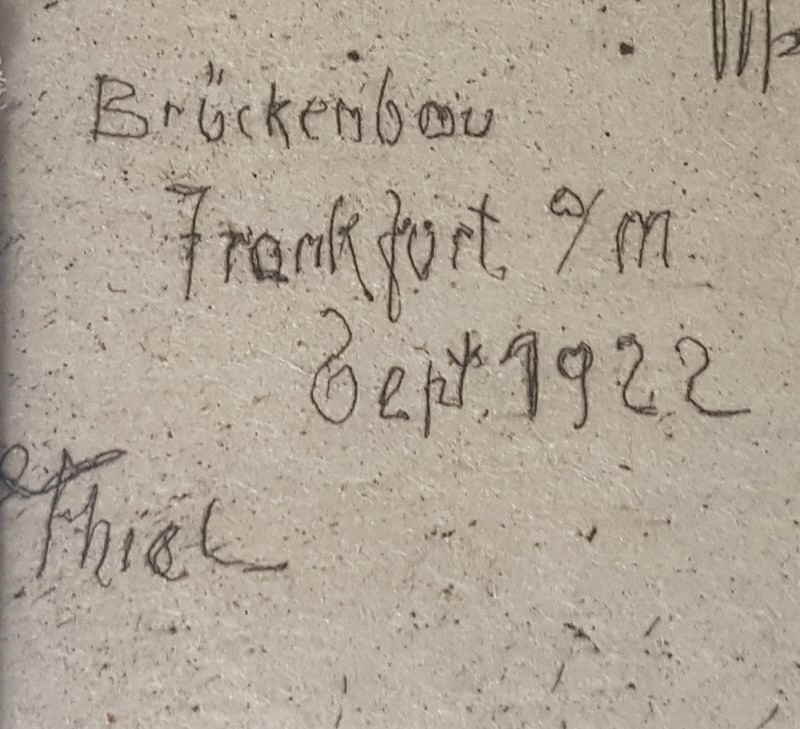 Brückenbau
Frankfurt a/M.
Sept. 1922
Thiel